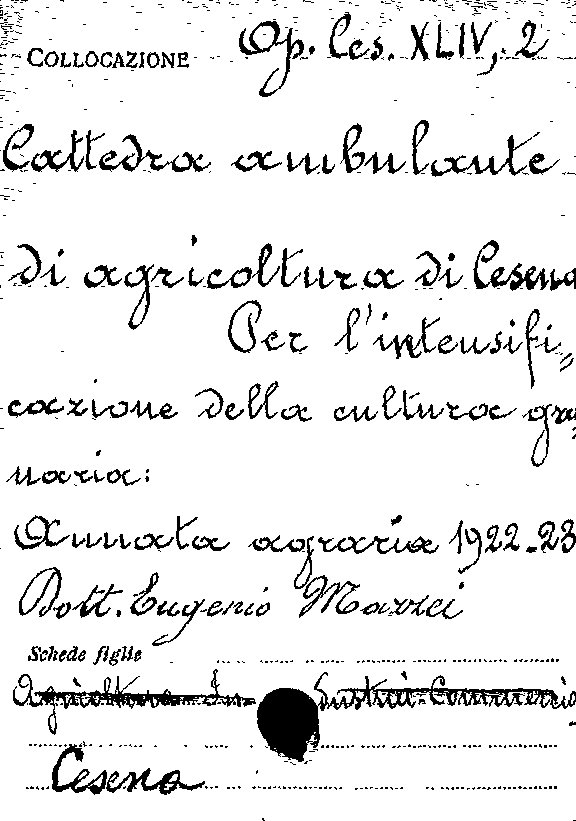 COLLOCAZIONE Op. Ces. XLIV, 2
Cattedra ambulante
di agricoltura di Cesena
Per l'intensifi=
cazione della cultura gra=
naria:
Annata agraria 1922-23
Dott. Eugenio Mazzei
Schede figlie
Agricoltura-In- dustria-Commercio
Cesena